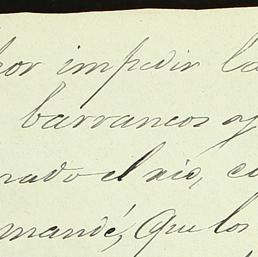 por impedir la
barrancos y
rado el rio, co
mandé, que los